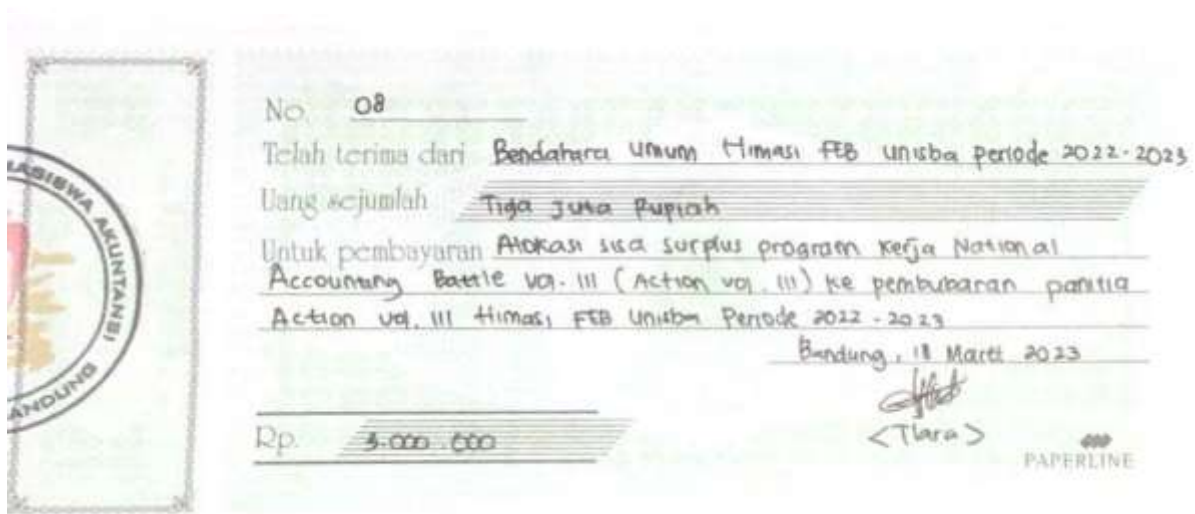 MAHASISWA AKUNTANSI
BANDUNG
No. 08
Telah terima dari Bendahara Umum Himasi FEB Unisba periode 2022-2023
Uang sejumlah Tiga Juta Rupiah
Untuk pembayaran Alokasi sisa surplus program kerja National
Accounting Battle Vol. III (Action vol. III) ke pembubaran panitia
Action vol. III Himasi FEB Unisba Periode 2022-2023
Bandung, 18 Maret 2023
Rp. 3.000.000
<Tiara>
PAPERLINE